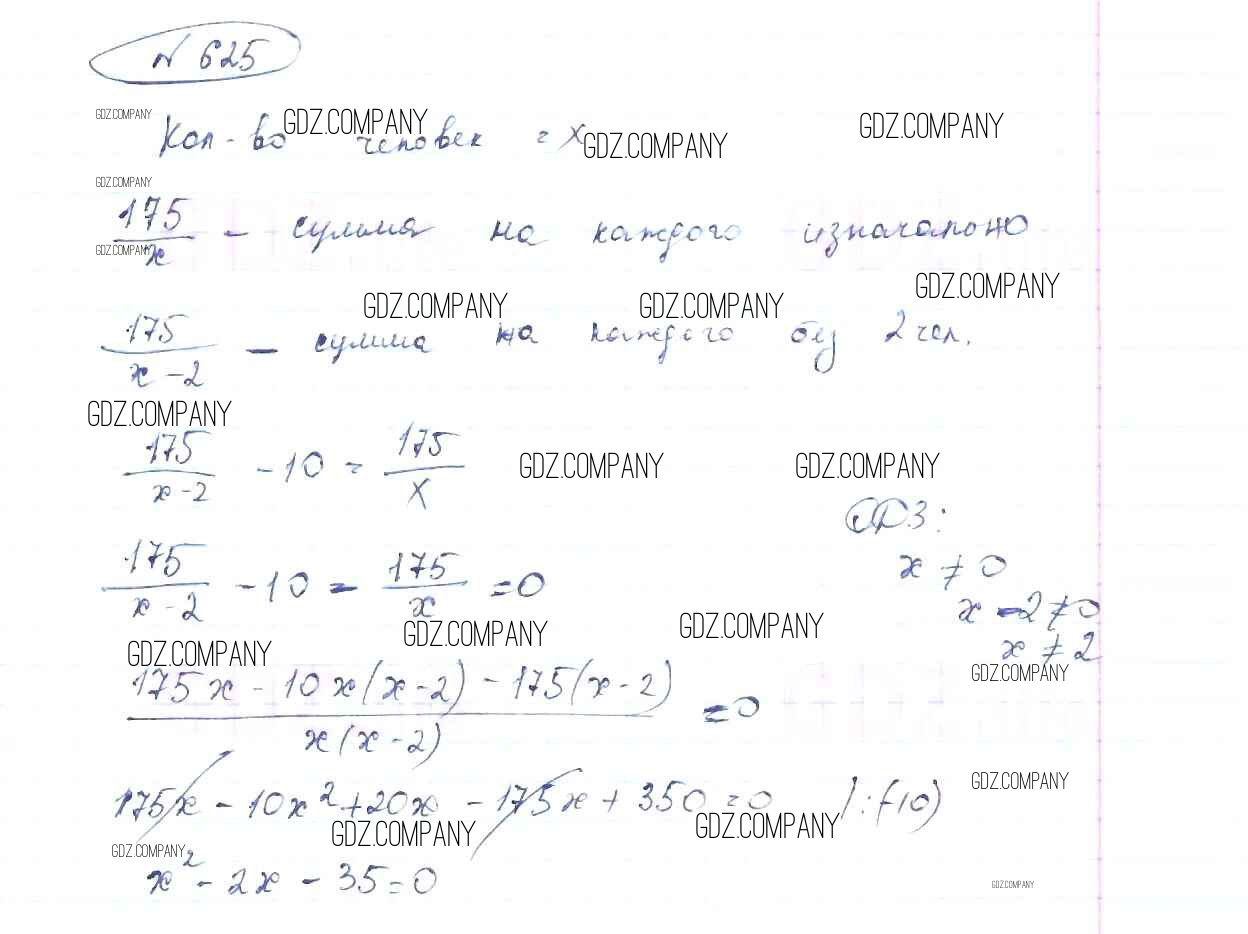 № 625
GDZ.COMPANY
Кол-во человек = x
GDZ.COMPANY GDZ.COMPANY GDZ.COMPANY
GDZ.COMPANY
175/x - сумма на каждого изначально
GDZ.COMPANY
GDZ.COMPANY GDZ.COMPANY GDZ.COMPANY
175/(x-2) - сумма на каждого без 2 чел.
GDZ.COMPANY
175/(x-2) - 10 = 175/x
GDZ.COMPANY GDZ.COMPANY
ОДЗ:
x ≠ 0
175/(x-2) - 10 - 175/x = 0
x - 2 ≠ 0
x ≠ 2
GDZ.COMPANY GDZ.COMPANY GDZ.COMPANY
GDZ.COMPANY
(175x - 10x(x-2) - 175(x-2))/(x(x-2)) = 0
GDZ.COMPANY
175x - 10x² + 20x - 175x + 350 = 0 /:(-10)
GDZ.COMPANY GDZ.COMPANY
GDZ.COMPANY
x² - 2x - 35 = 0
GDZ.COMPANY